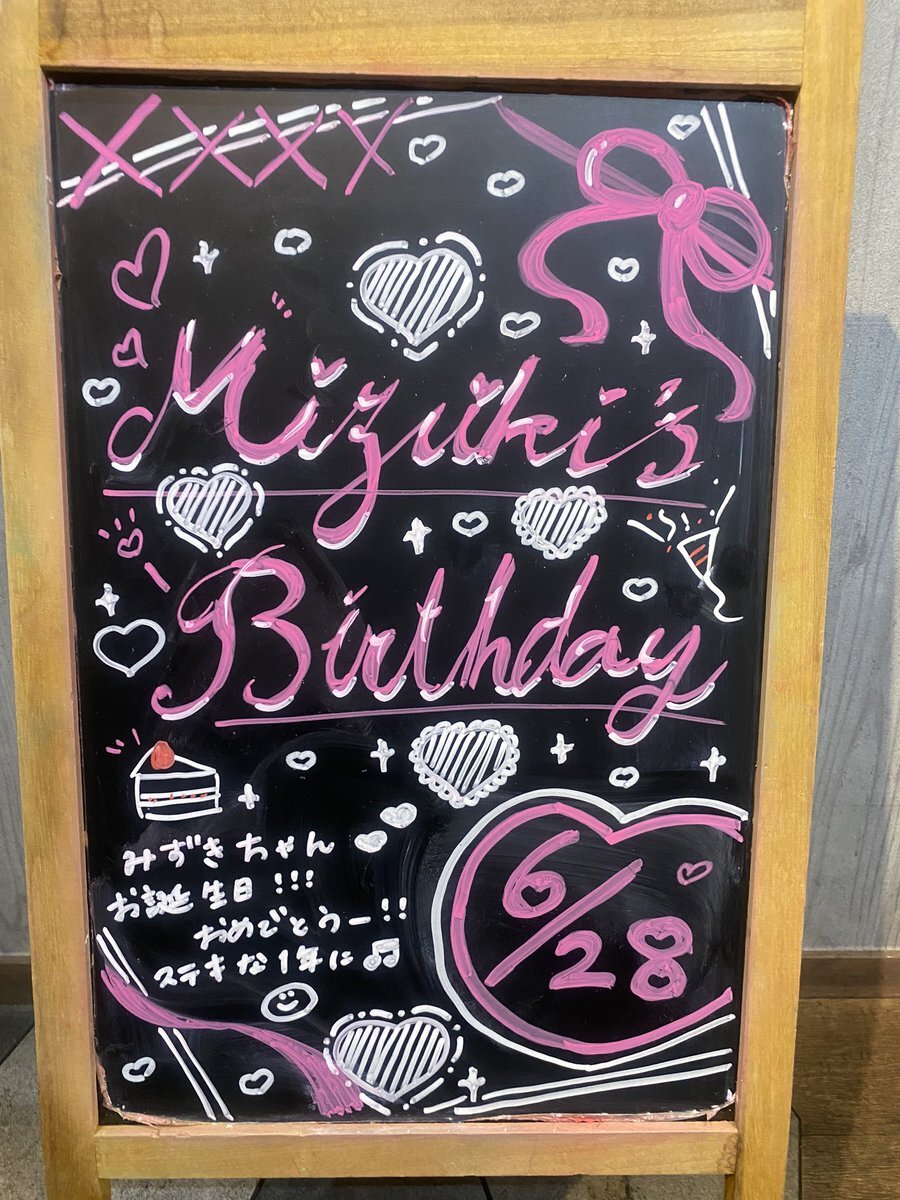 Mizuki's
Birthday
みずきちゃん
お誕生日!!!
おめでとうー!!
ステキな1年に♫
6/28